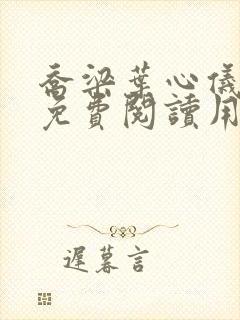 喬梁葉心儀
免費閱讀用
遲暮言